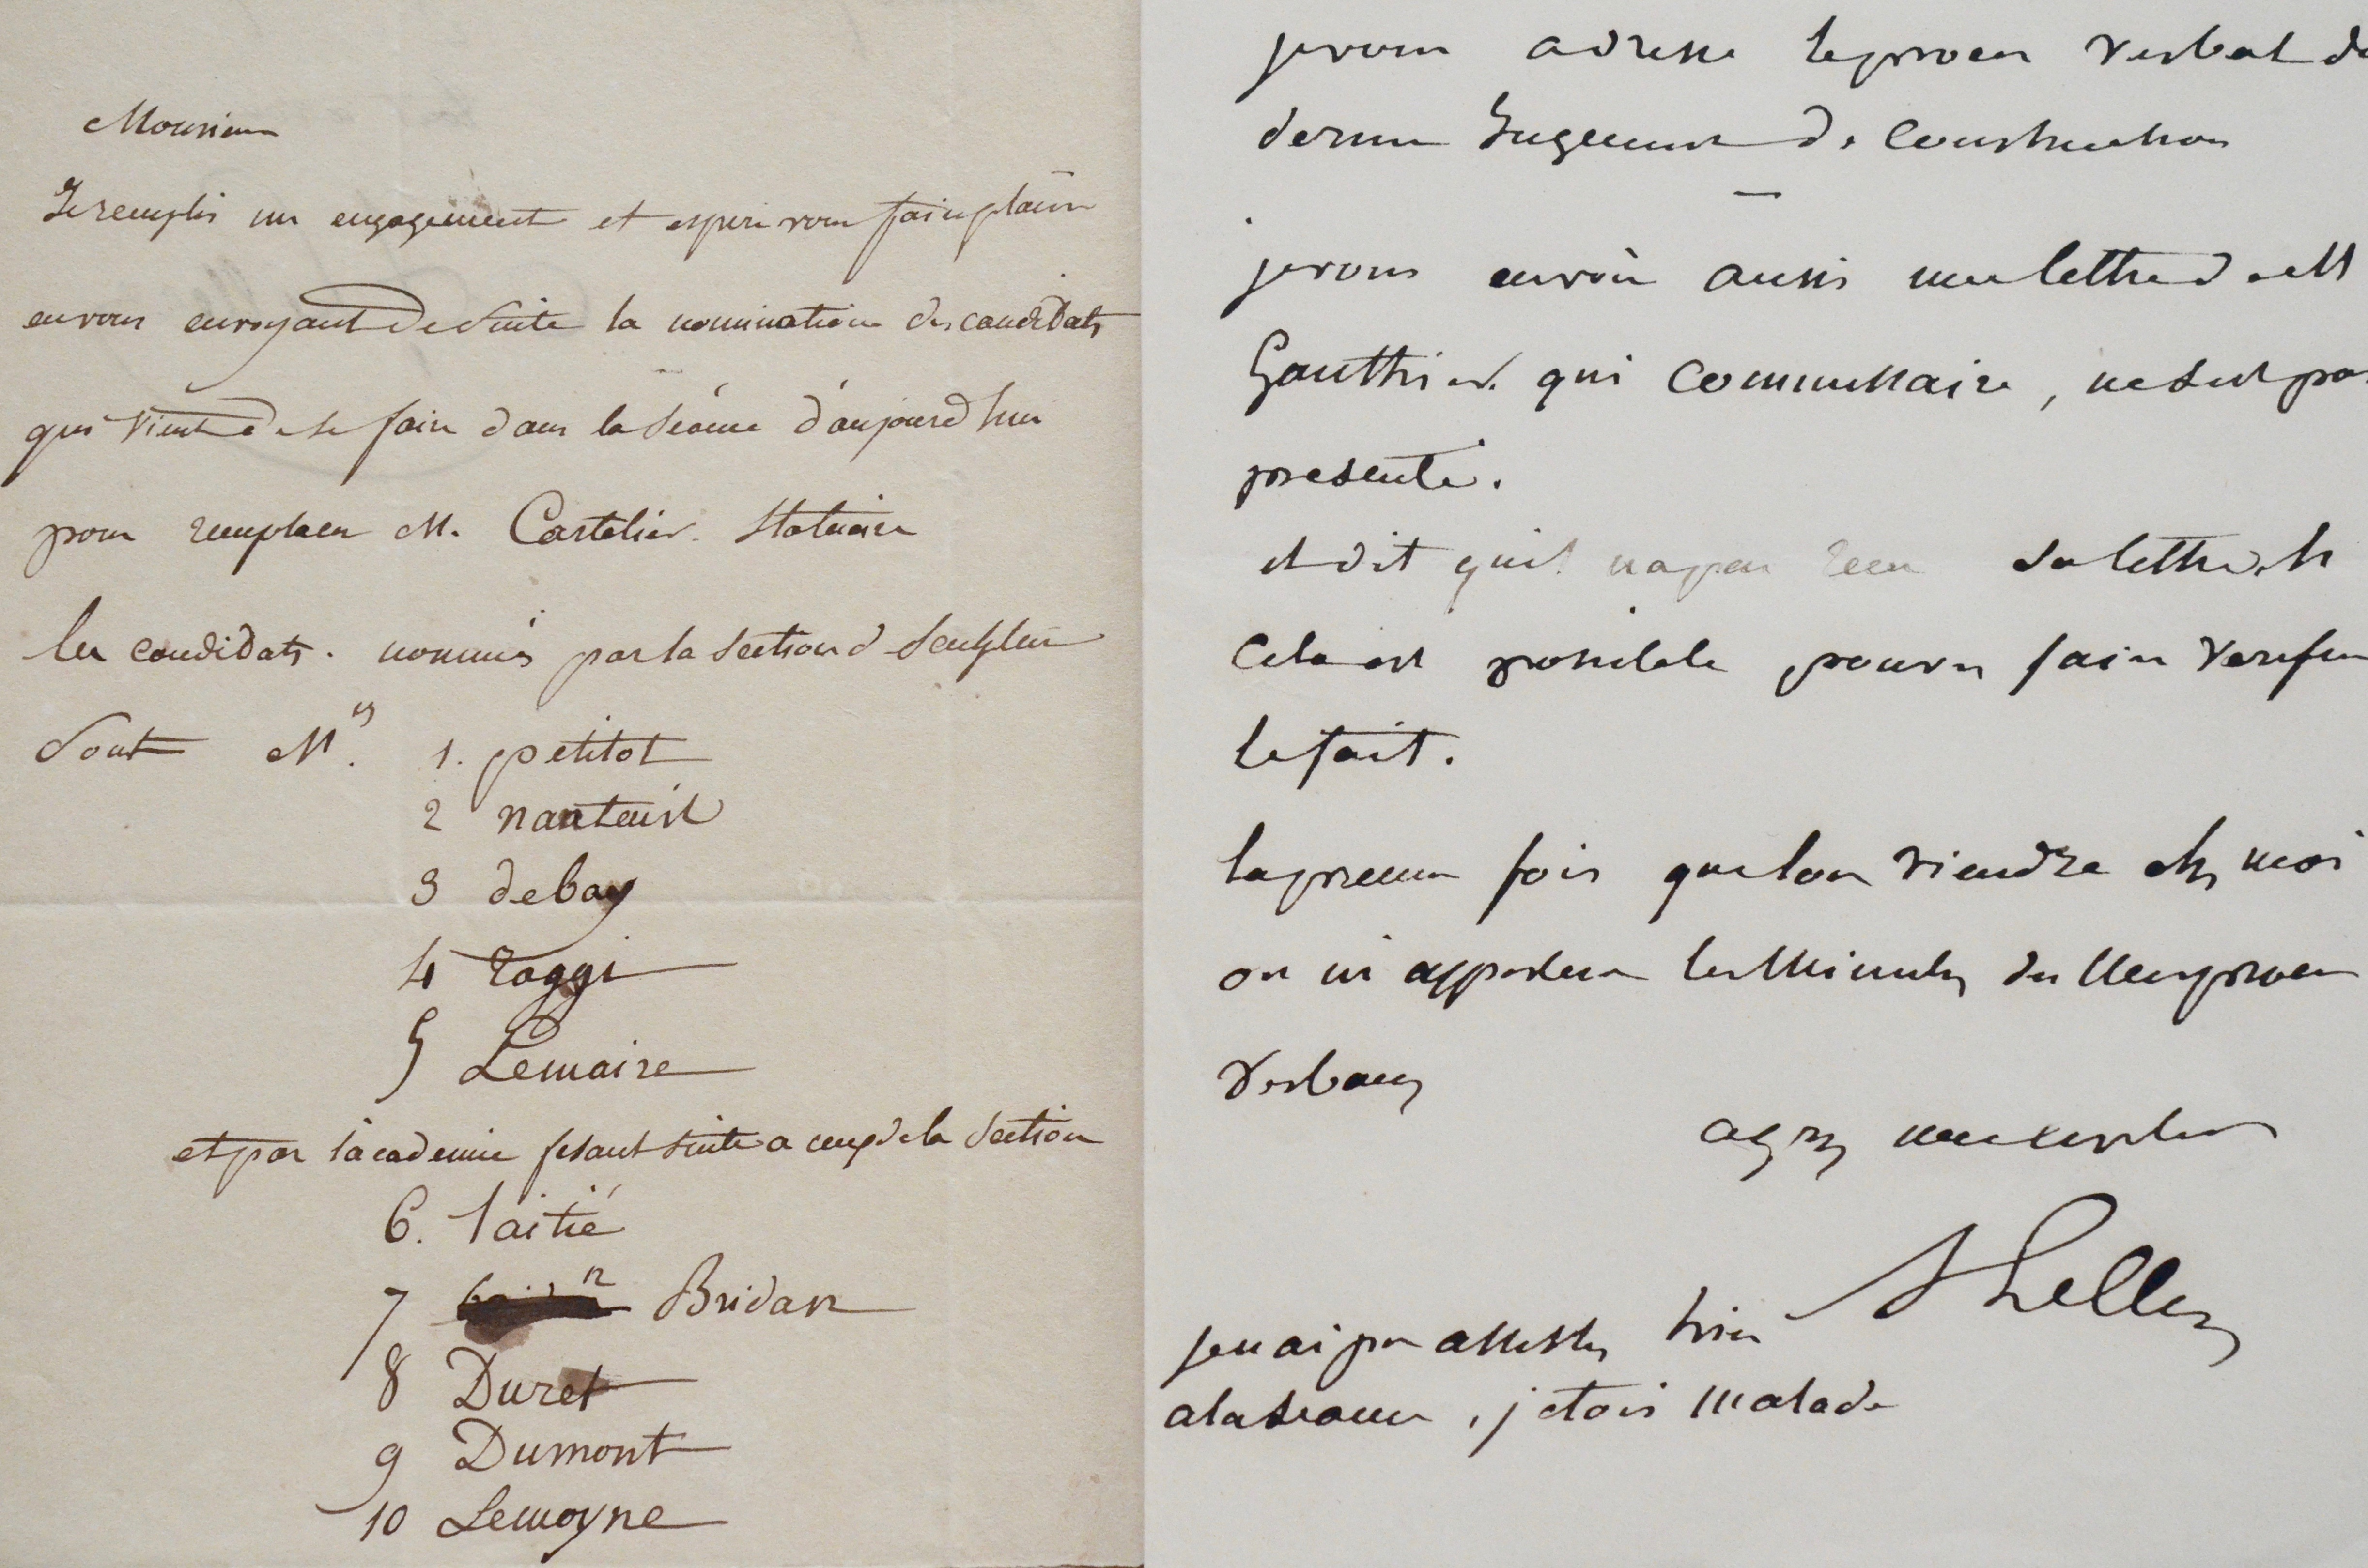 Monsieur
Je remplis un engagement et espere vous faire plaisir
en vous envoyant de suite la nomination des candidats
qui vient de se faire dans la séance d'aujourd hui
pour remplacer M. Cartelier. Statuaire
les candidats. nommés par la section d sculpture
sont M.rs 1. petitot
2 nanteuil
3 debay
4 raggi
5 Lemaire
et par l'academie fesant suite a ceux de la section
6. laitié
7 Bridan
8 Duret
9 Dumont
10 Lemoyne
je vous adresse le proces verbal du
dernier Jugement de Construction
je vous envoie aussi une lettre de M
Gauthier. qui Commissaire, ne s'est pas
presenté.
et dit quil na pas recu sa lettre, si
Cela est possible, pouvez faire verifier
le fait.
la premiere fois que lon viendra chez moi
on m apportera les Minutes des proces
Verbaux
agrez
je n ai pu assister hier
a la seance, j etois malade